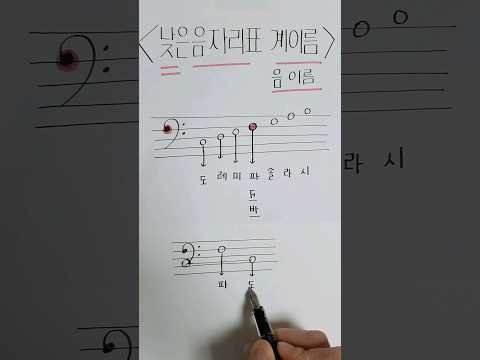 <낮은음자리표 계이름>
음 이름
도 레 미 파 솔 라 시
바
파 도
라 시